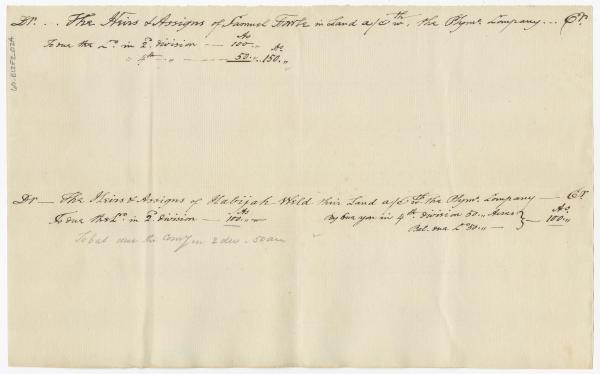 Dr... The Heirs & Assigns of Samuel Fowle in Land a/c wth the Plymo. Company... Cr.
Ac
To due the Co. in 2d. division — 100.,, Ac
,, 4th ,, — 50.,, 150.,,
Dr — The Heirs & Assigns of Habijah Weld their Land a/c wth the Plymo. Company — Cr
Ac
To due the Co. in 2d. division — 100.,,
By due you in 4th division 50.,, Acres } Ac
Bal. due Co 50.,, — } 100.,,
To bal due the Comy in 2 div - 50 acr